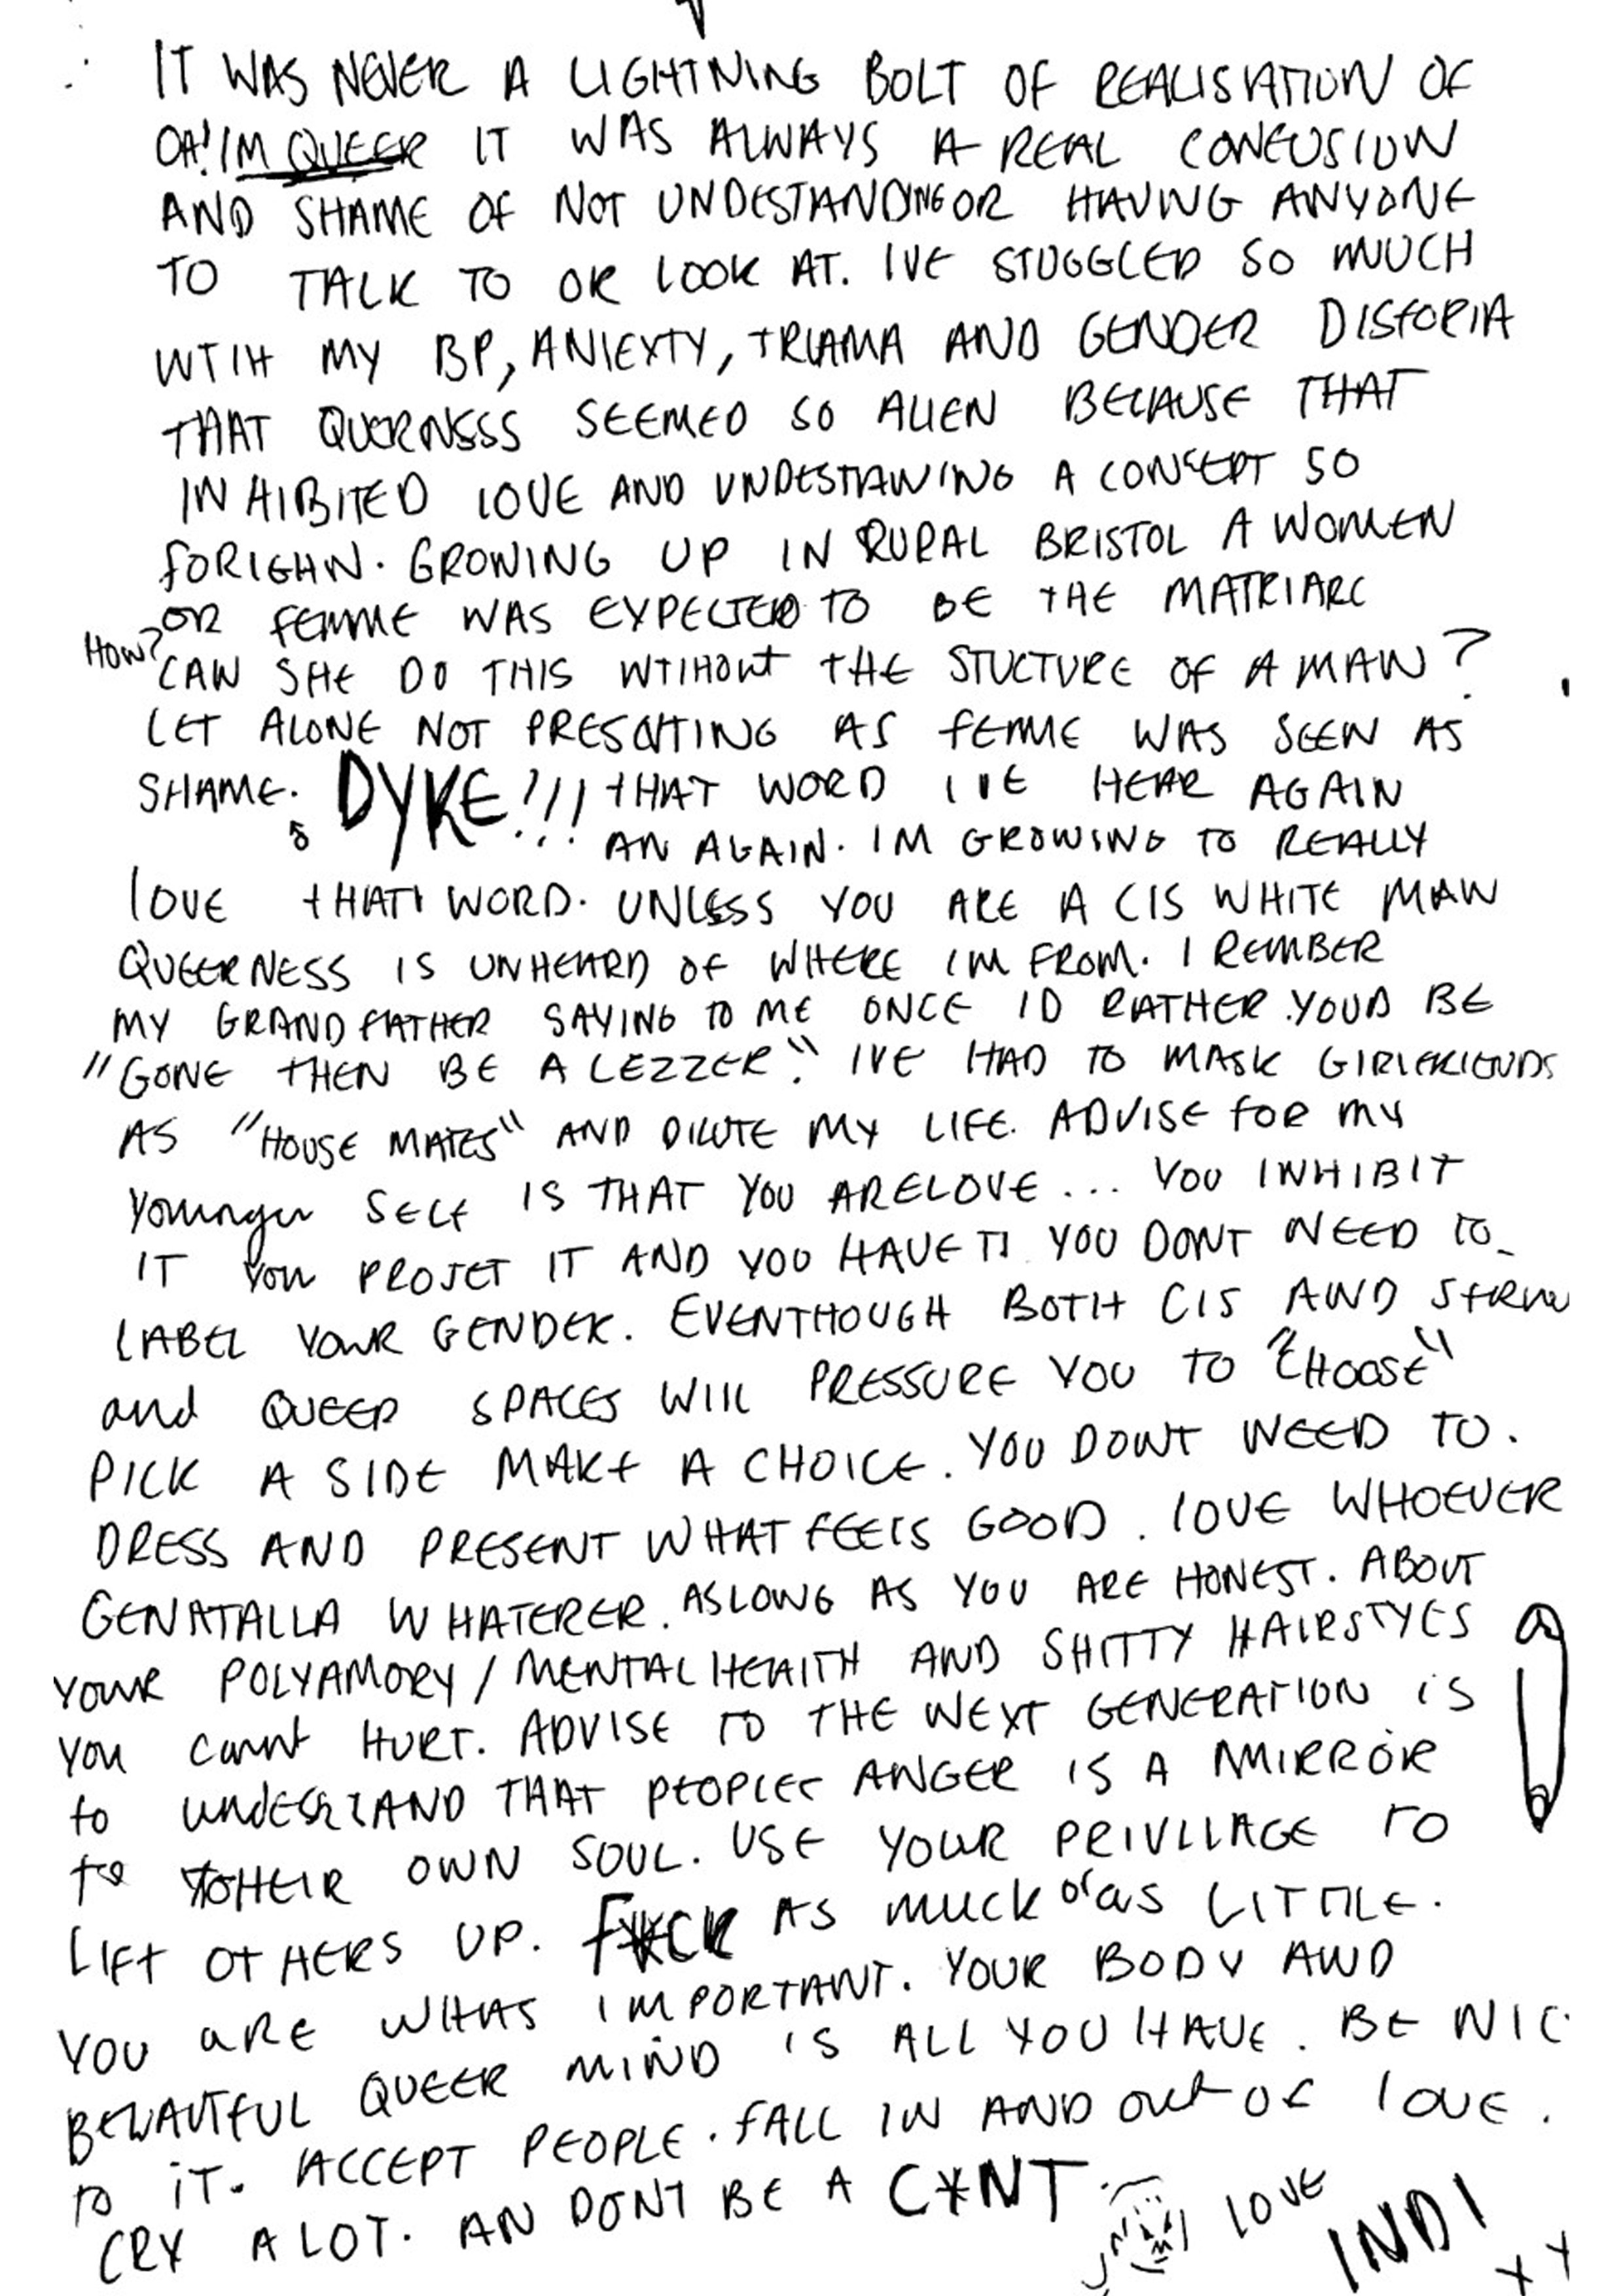 IT WAS NEVER A LIGHTNING BOLT OF REALISATION OF
OH! IM QUEER IT WAS ALWAYS A REAL CONFUSION
AND SHAME OF NOT UNDESTANDING OR HAVING ANYONE
TO TALK TO OR LOOK AT. IVE STUGGLED SO MUCH
WTIH MY BP, ANIEXTY, TRUAMA AND GENDER DISFORIA
THAT QUERNSSS SEEMED SO ALIEN BECAUSE THAT
INHIBITED LOVE AND UNDESTANING A CONCEPT SO
FORIGHN. GROWING UP IN RURAL BRISTOL A WOMEN
OR FEMME WAS EXPECTED TO BE THE MATRIARC
HOW? CAN SHE DO THIS WTIHOUT THE STUCTURE OF A MAN?
LET ALONE NOT PRESENTING AS FEMME WAS SEEN AS
SHAME. DYKE!!! THAT WORD IVE HEAR AGAIN
AN AGAIN. IM GROWING TO REALLY
LOVE THAT WORD. UNLESS YOU ARE A CIS WHITE MAN
QUEERNESS IS UNHEARD OF WHERE IM FROM. I REMBER
MY GRANDFATHER SAYING TO ME ONCE ID RATHER YOUD BE
"GONE THEN BE A LEZZER." IVE HAD TO MASK GIRLFRIENDS
AS "HOUSE MATES" AND DILUTE MY LIFE. ADVISE FOR MY
Younger SELF IS THAT YOU ARELOVE... YOU INHIBIT
IT You PROJET IT AND YOU HAVE TI YOU DONT NEED TO
LABEL YOUR GENDER. EVENTHOUGH BOTH CIS AND
and QUEER SPACES WILL PRESSURE YOU TO "CHOOSE"
PICK A SIDE MAKE A CHOICE. YOU DONT NEED TO.
DRESS AND PRESENT WHAT FEELS GOOD. LOVE WHOEVER
GENATALLA WHATERER. ASLONG AS YOU ARE HONEST. ABOUT
YOUR POLYAMORY / MENTAL HEALTH AND SHITTY HAIRSTYES
YOU cannt HURT. ADVISE TO THE NEXT GENERATION IS
to undeSTAND THAT PEOPLES ANGER IS A MIRROR
TO THEIR OWN SOUL. USE YOUR PRIVLLAGE TO
LIFT OTHERS UP. F*CK AS MUCK or as LITTLE.
YOU aRE WHAS IMPORTANT. YOUR BODY AND
BEUAUTFUL QUEER MIND IS ALL YOU HAVE. BE NIC
TO iT. ACCEPT PEOPLE. FALL IN AND out OF LOVE.
CRY A LOT. AN DONT BE A C*NT
LOVE
INDI
XX